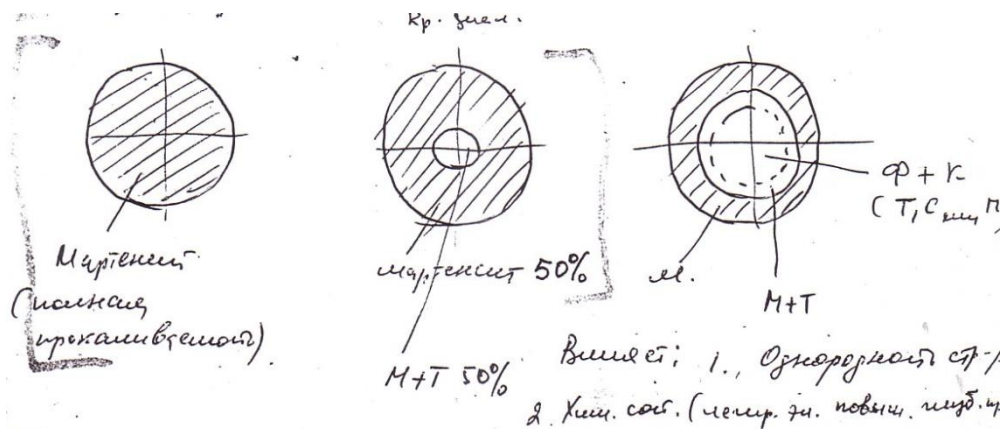 Кр. диам.
Мартенсит
(полная
прокаливаемость)
мартенсит 50%
М+Т 50%
М.
М+Т
Ф + К
(Т, С
Влияет: 1., Однородность стр-р
2. Хим. сост. (легир. эл. повыш. глуб. пр